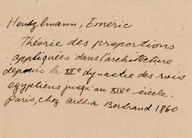 Henszlmann, Emeric
Théorie des proportions
appliquées dans l'architecture
depuis la XIIe dynastie des rois
egyptiens jusqu'au XIVe siècle.
Paris, chez Arthur Bertrand 1860